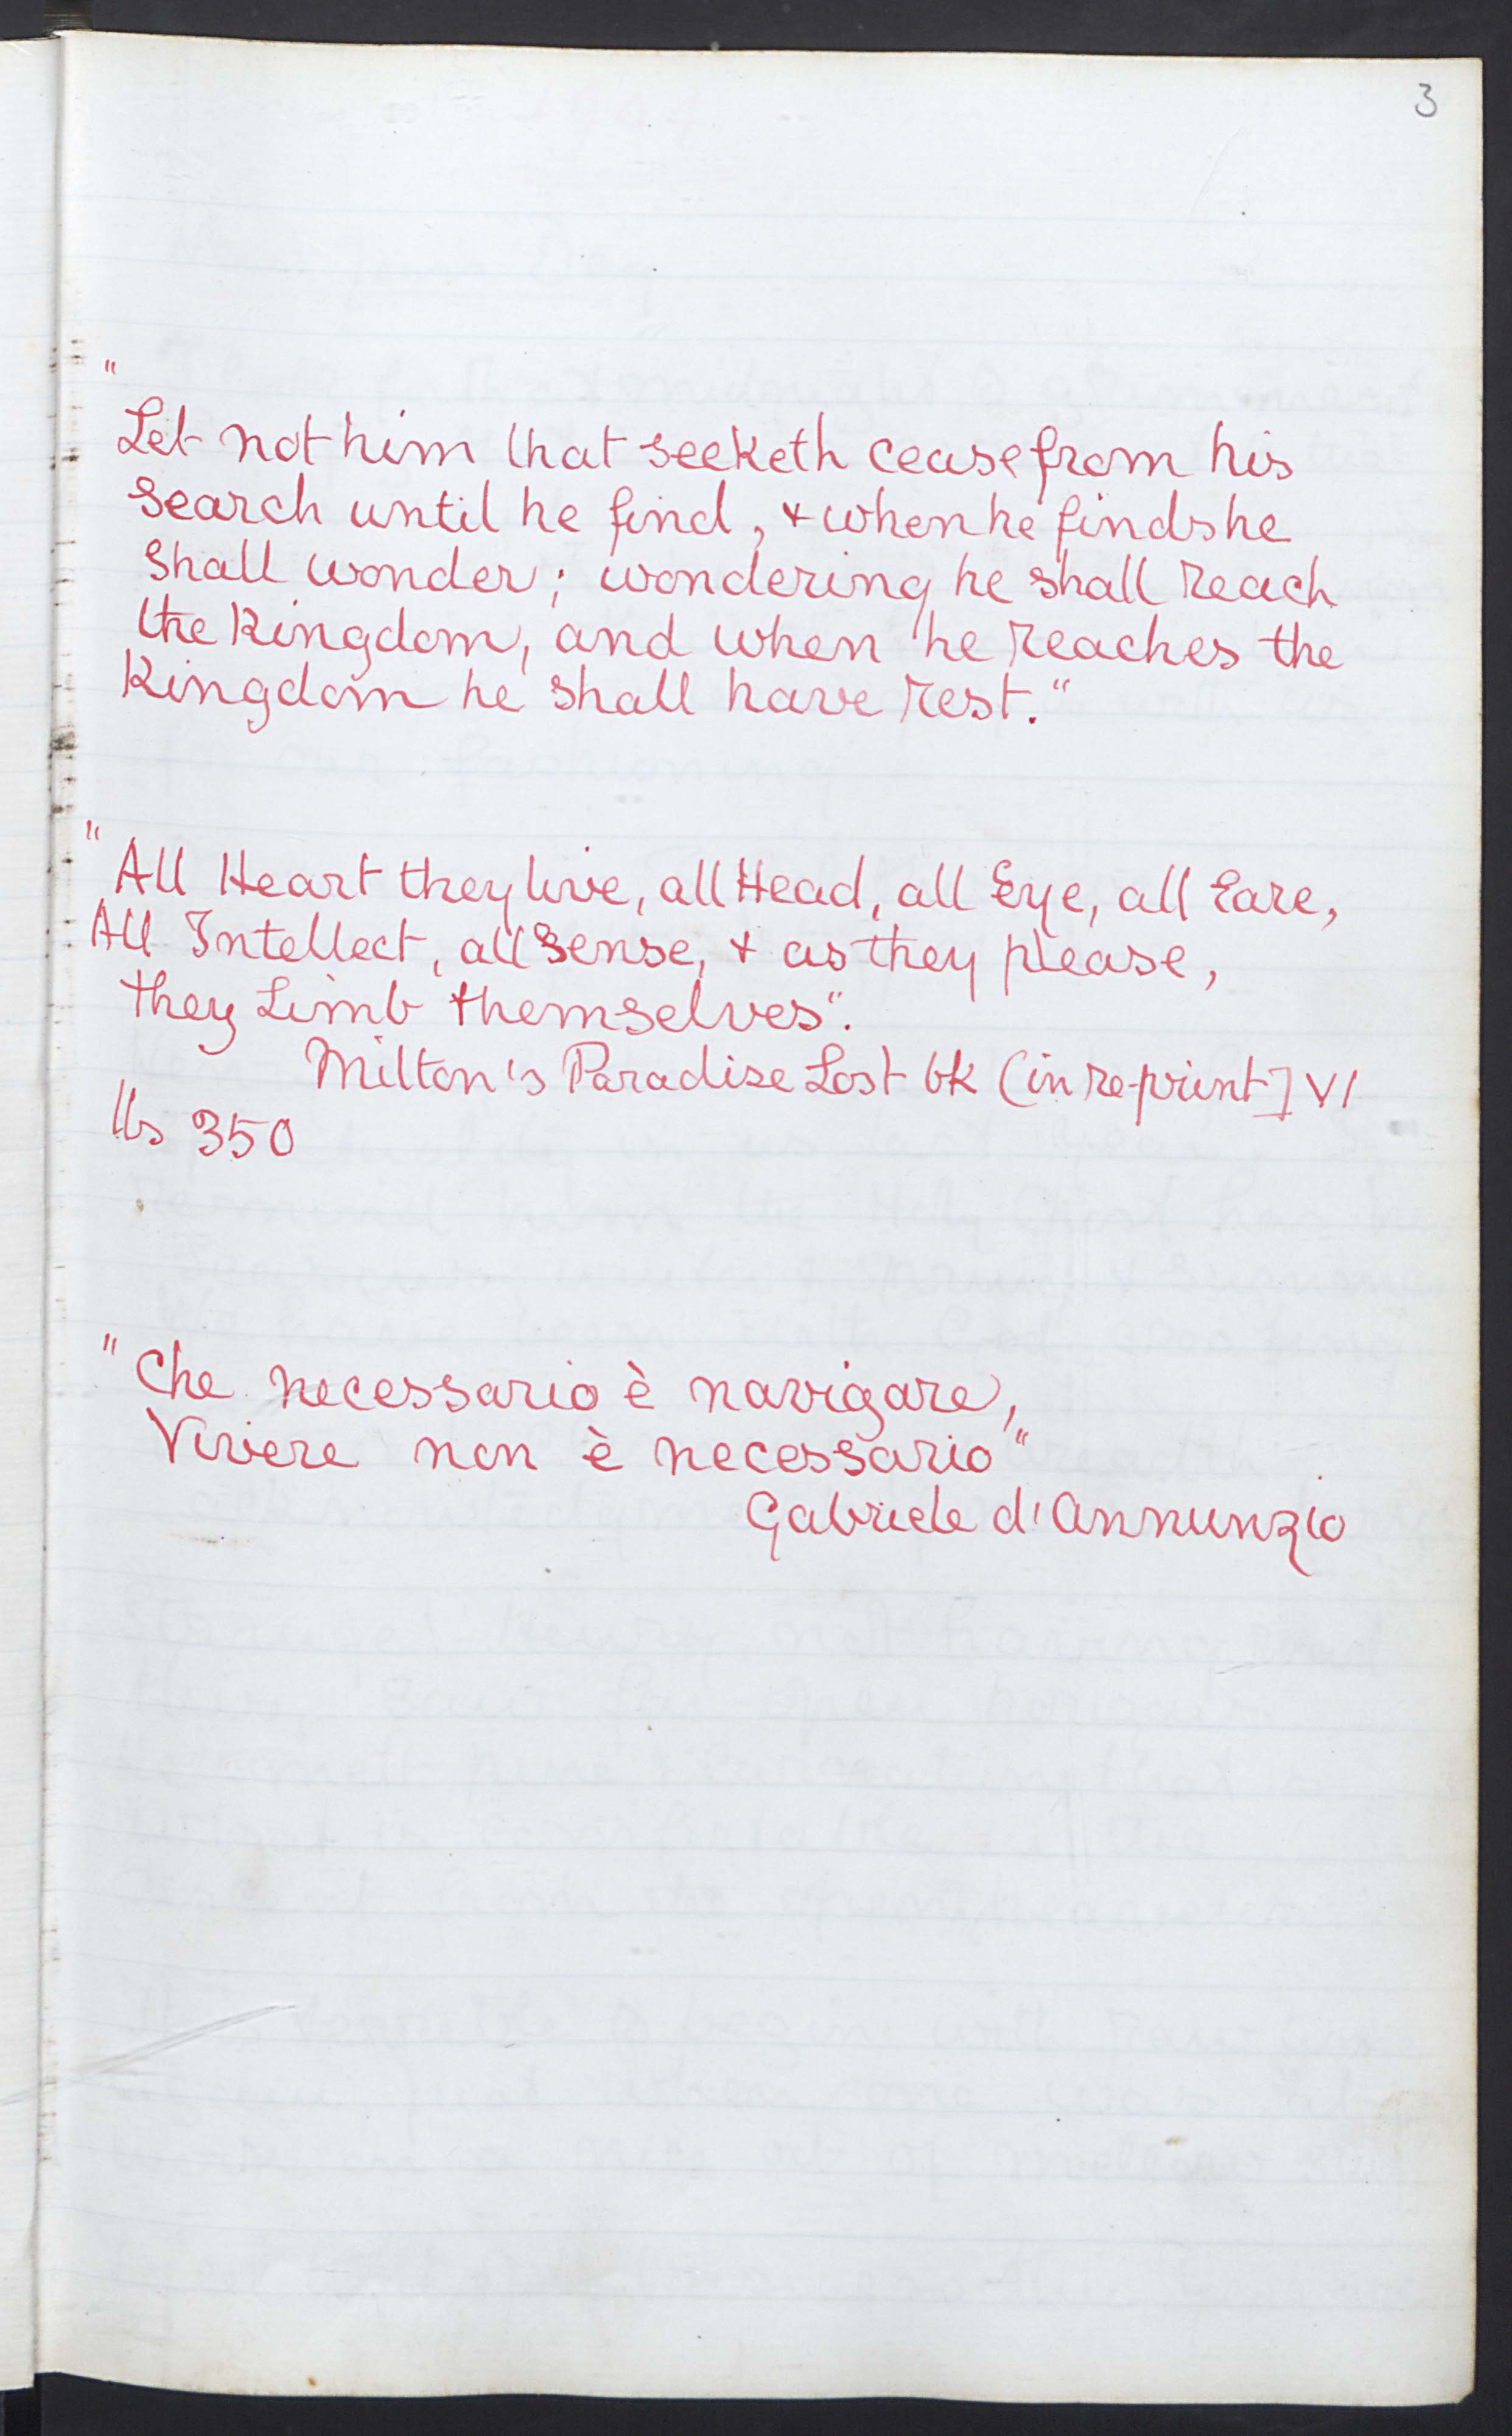 3
"
Let not him that seeketh cease from his
search until he find, & when he finds he
shall wonder; wondering he shall reach
the kingdom, and when he reaches the
Kingdom he shall have rest."
"All Heart they live, all Head, all Eye, all Eare,
All Intellect, all Sense, & as they please,
they Limb themselves".
Milton's Paradise Lost bk (in re-print] VI
lls 350
"Che necessario è navigare,
Vivere non è necessario"
Gabriele d'Annunzio